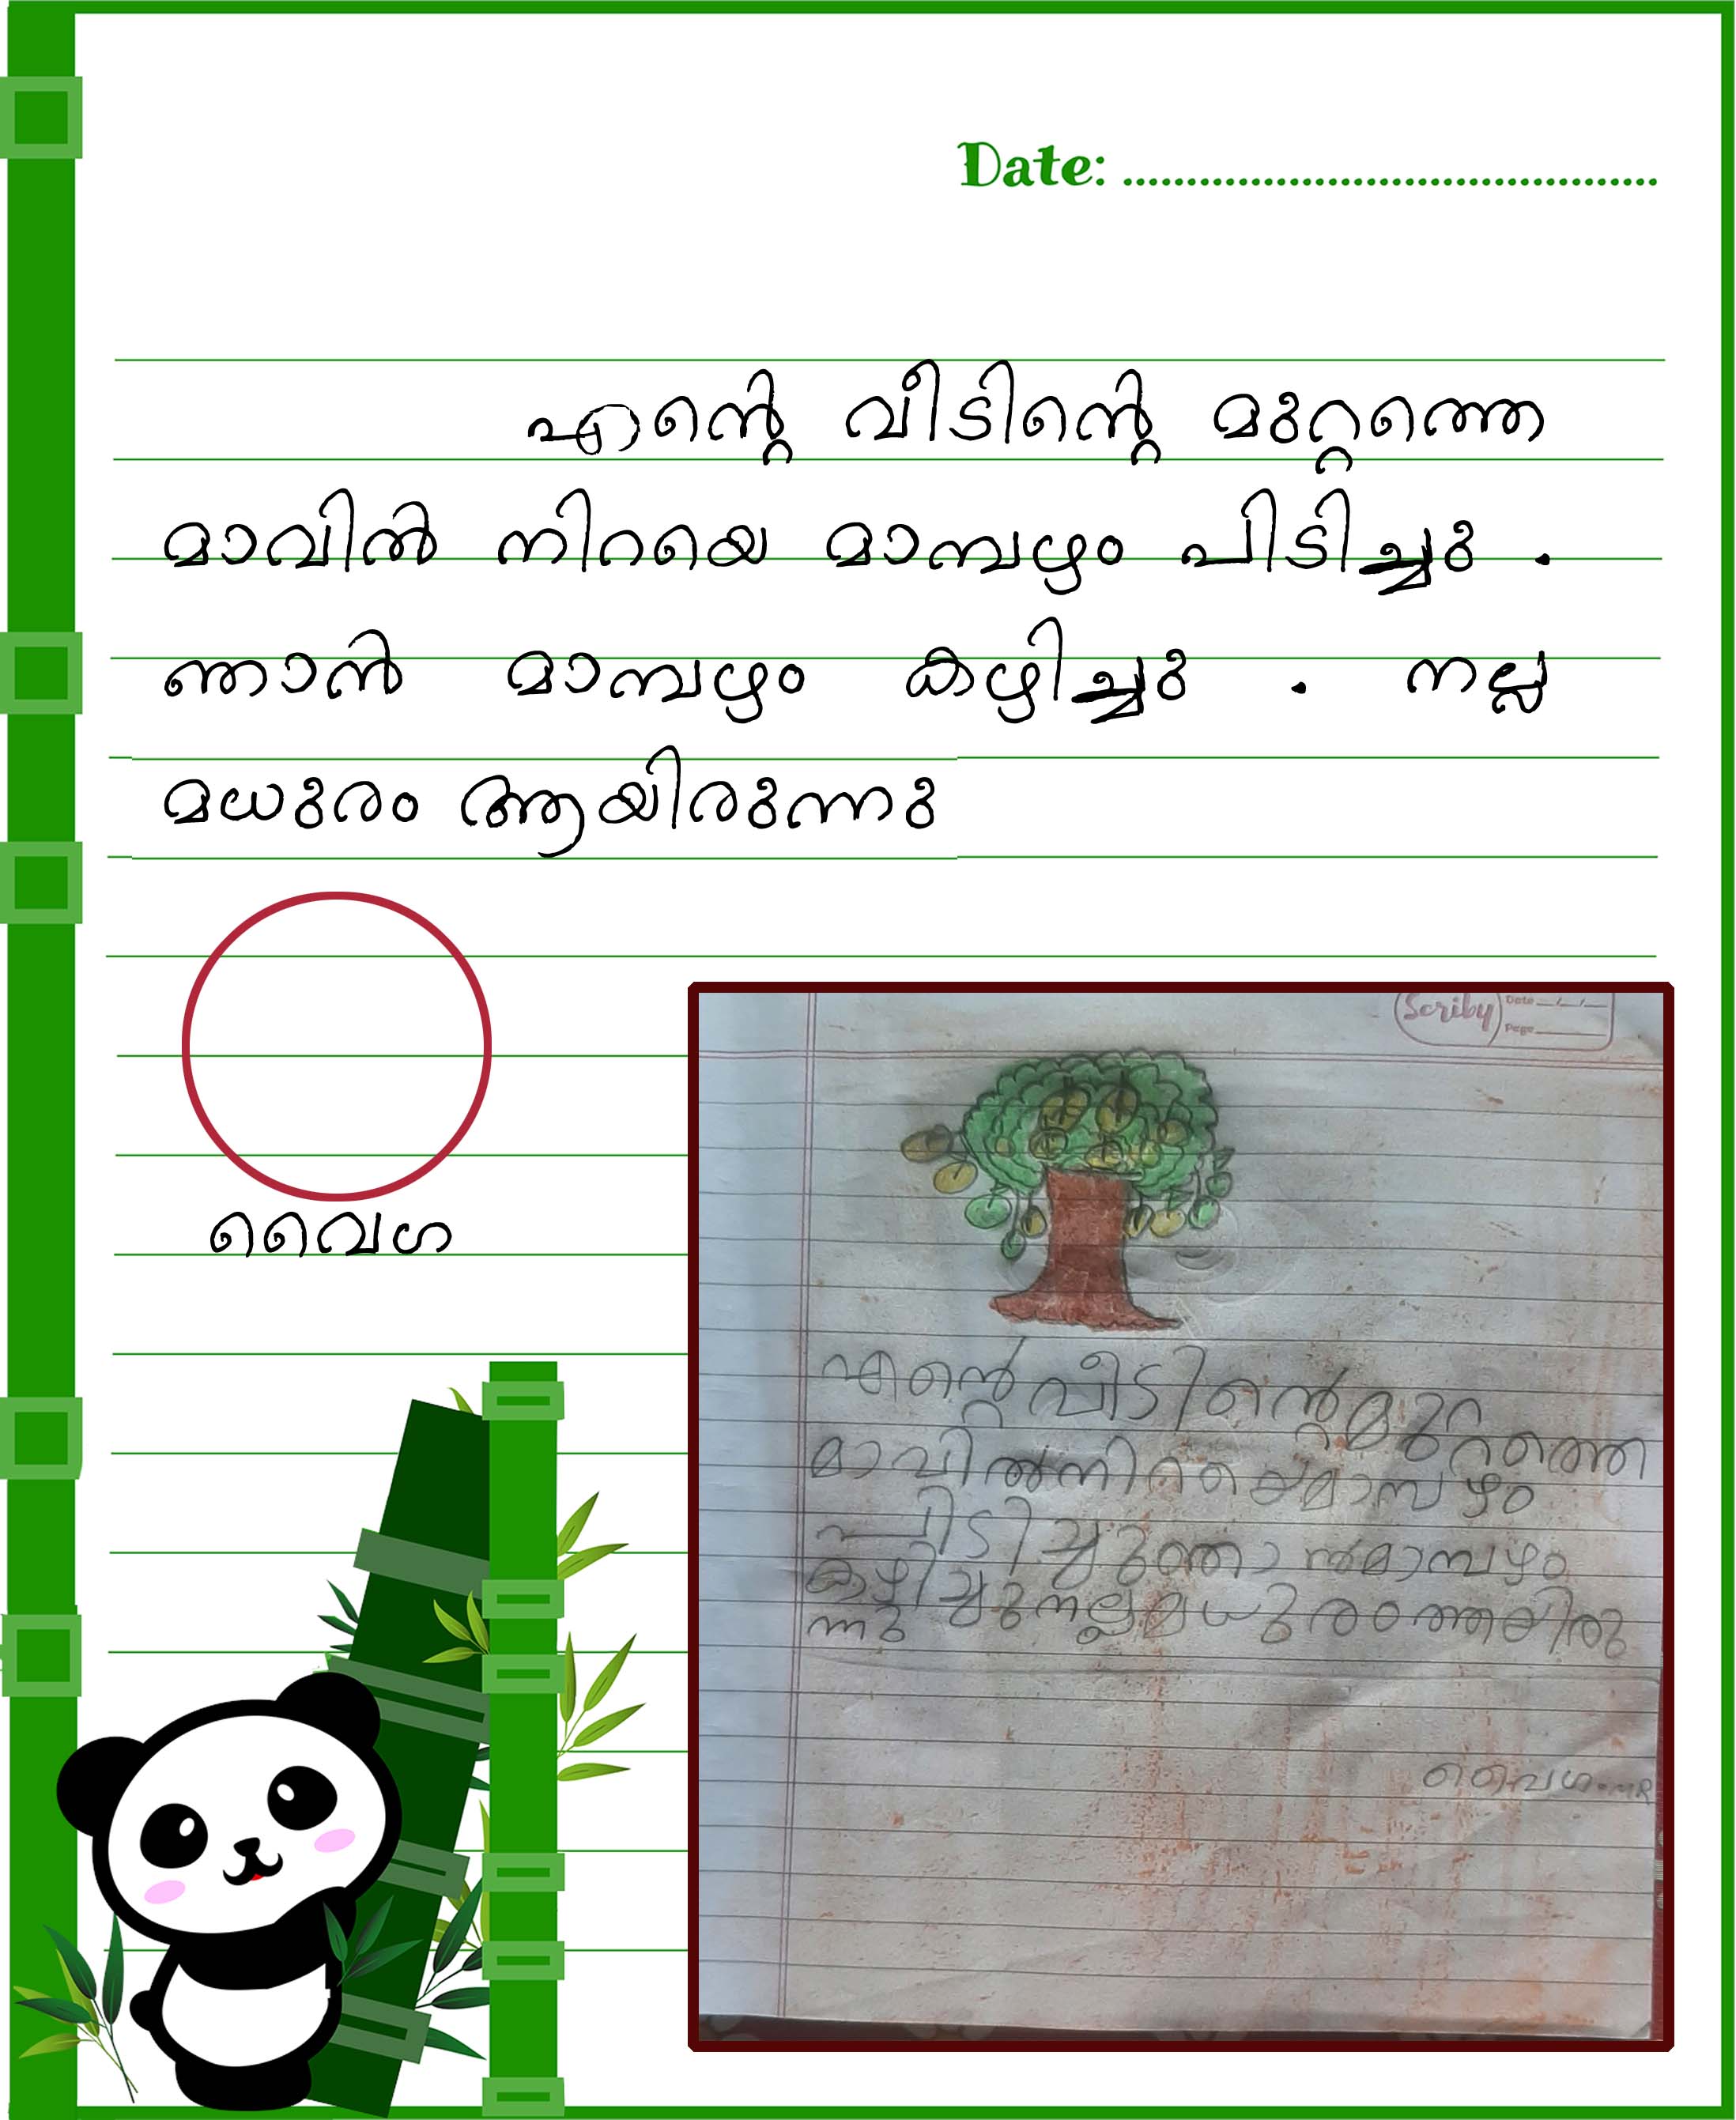 Date: ..........................................
എന്റെ വീടിന്റെ മുറ്റത്തെ
മാവിൽ നിറയെ മാമ്പഴം പിടിച്ചു .
ഞാൻ മാമ്പഴം കഴിച്ചു . നല്ല
മധുരം ആയിരുന്നു
വൈഗ
Scriby
Date __/__/__
Page ______
എന്റെ വീടിന്റെ മുറ
റത്തെ
മാവിൽ നിറയെ മാമ്പഴം
പിടിച്ചു ഞാൻ മാമ്പഴം
കഴിച്ചു നല്ല മധുരം ആയിരു
ന്നു
വൈഗ.MR